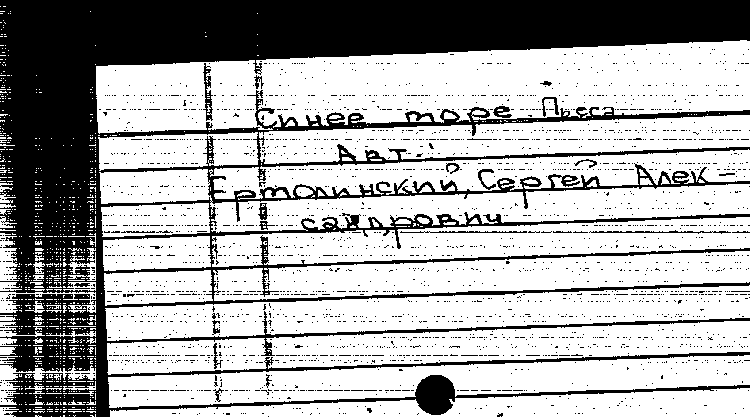 Синее море Пьеса.
Авт.:
Ертолинский, Сергей Алек-
сандрович